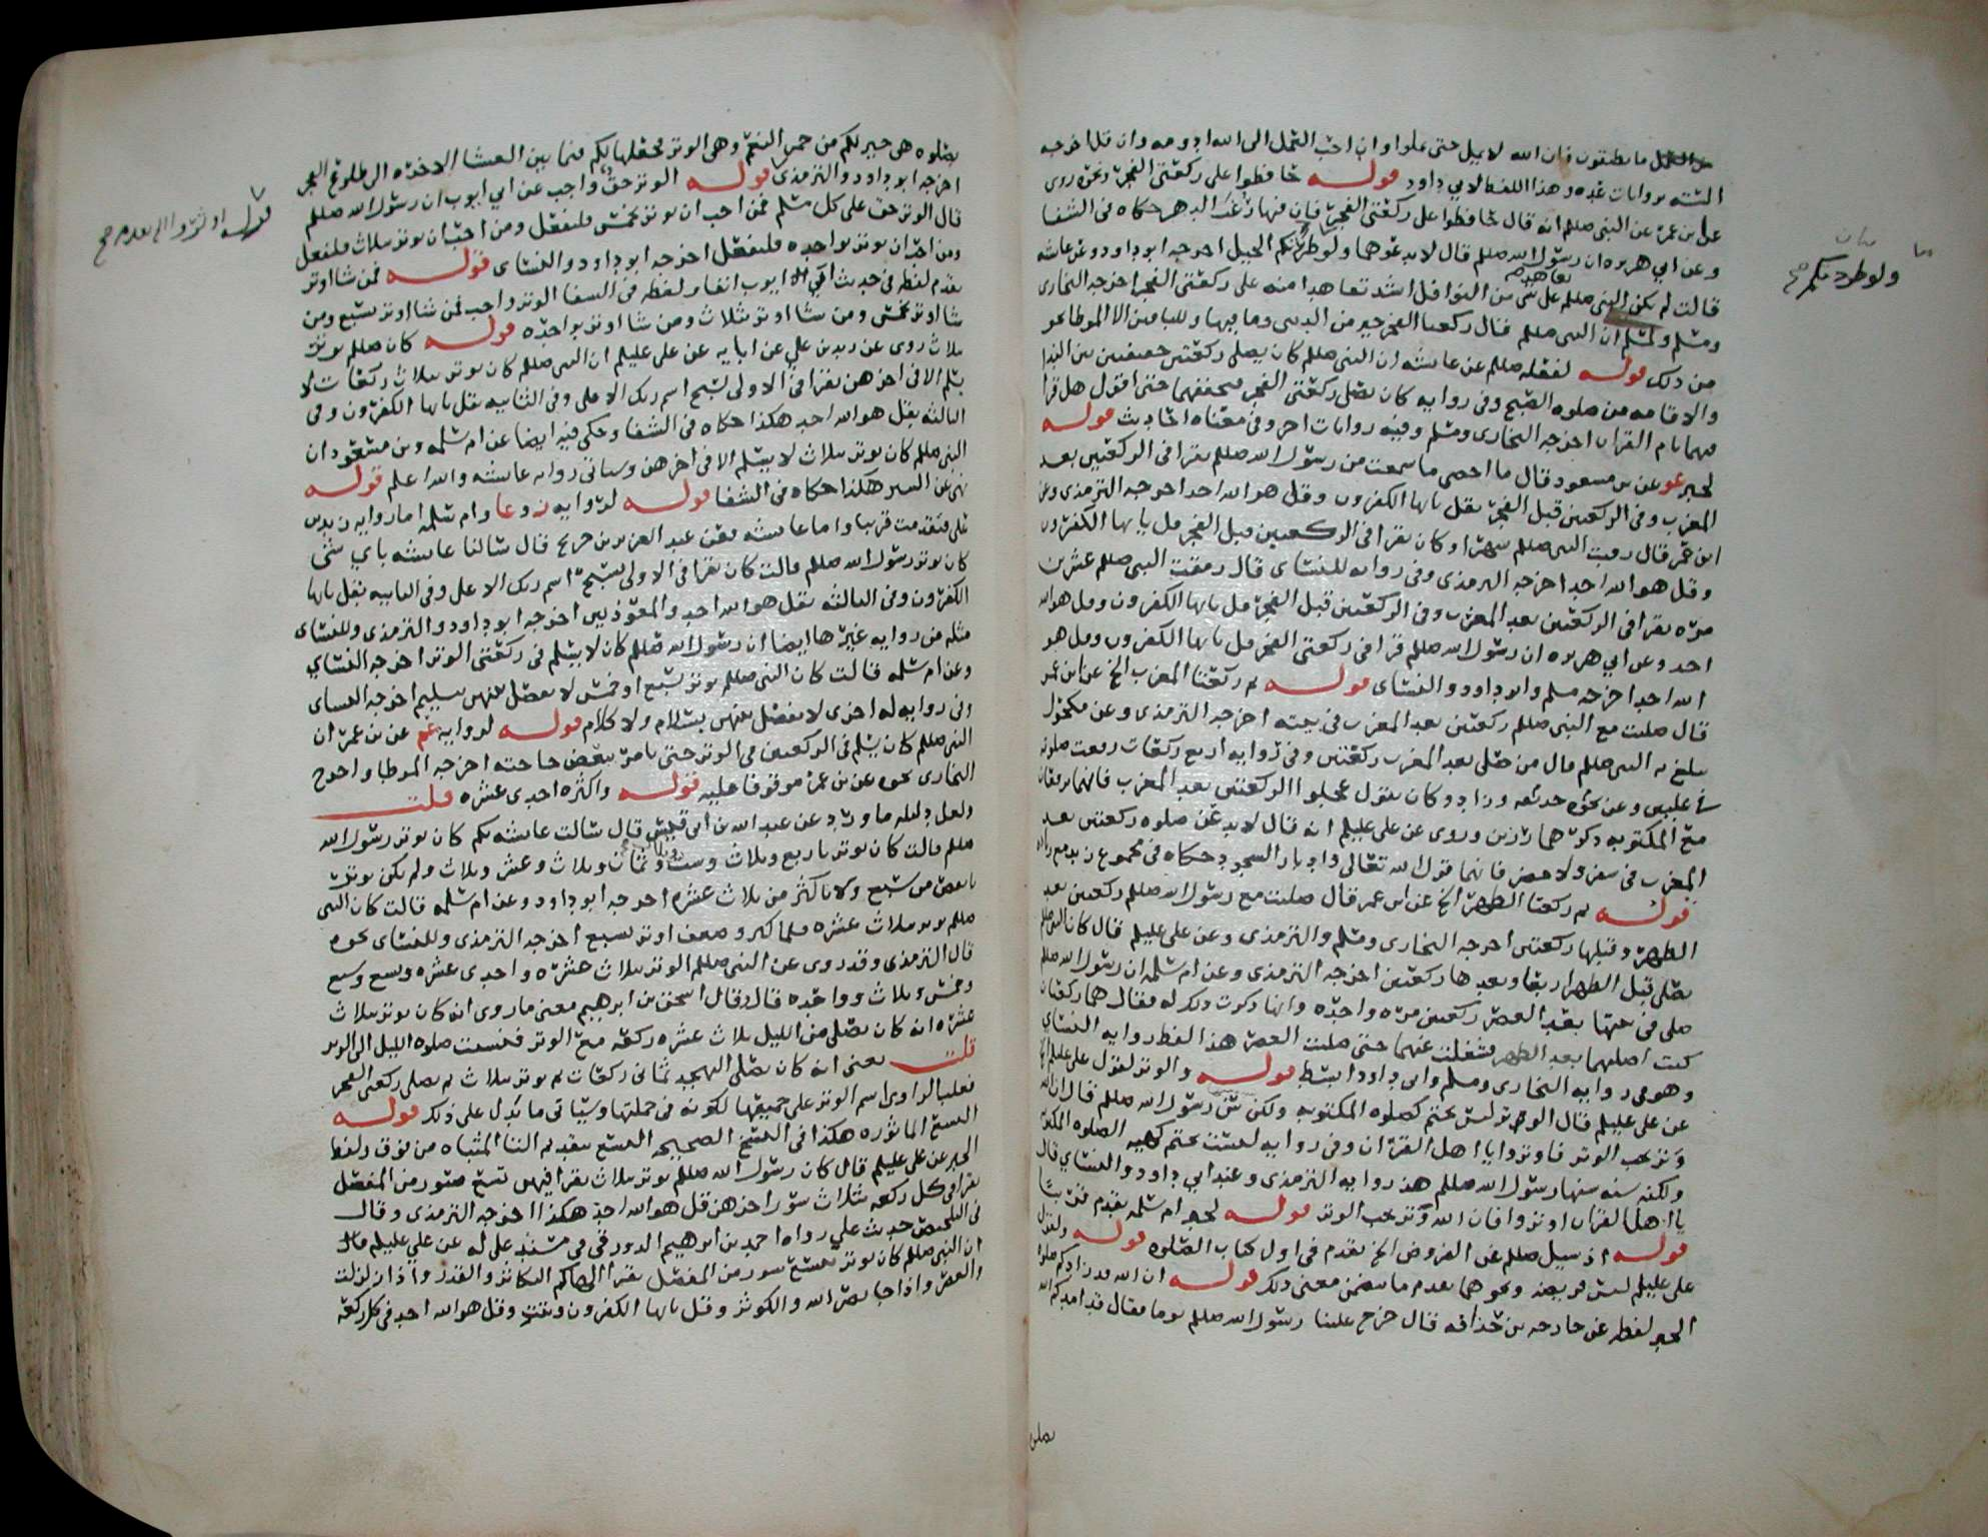 من العمل ما تطيقون فان الله لا يمل حتى تملوا وان احب العمل الى الله ادومه وان قل اخرجه
الستة بروايات عده وهذا اللفظ لابي داود قوله حافظوا على ركعتي الفجر ونحوه روى
عن ابن عمر عن النبي صللم انه قال حافظوا على ركعتي الفجر فان فيهما رغب الدهر حكاه في الشفا
وعن ابي هريره ان رسول الله صللم قال لا تدعوهما ولو طردتكم الخيل اخرجه ابو داود وعن عائشه
قالت لم يكن النبي صللم على شي من النوافل اشد تعاهدا منه على ركعتي الفجر اخرجه البخاري
ومسلم ولمسلم ان النبي صللم قال ركعتا الفجر خير من الدنيا وما فيها وللباقين الا الموطا نحو
من ذلك قوله لفعله صللم عن عائشه ان النبي صللم كان يصلي ركعتين خفيفتين بين الندا
والاقامه من صلوه الصبح وفي روايه كان يصلي ركعتي الفجر فيخففهما حتى اقول هل قرا
فيهما بام القران اخرجه البخاري ومسلم وفيه روايات اخر وفي معناه احاديث قوله
لخبر عو عن بن مسعود قال ما احصي ما سمعت من رسول الله صللم يقرا في الركعتين بعد
المغرب وفي الركعتين قبل الفجر بقل يايها الكفرون وقل هو الله احد اخرجه الترمذي وعن
ابن عمر قال رمقت النبي صللم شهرا وكان يقرا في الركعتين قبل الفجر قل يايها الكفرون
وقل هو الله احد اخرجه الترمذي وفي روايه للنساي قال رمقت النبي صللم عشرين
مره يقرا في الركعتين بعد المغرب وفي الركعتين قبل الفجر قل يايها الكفرون وقل هو الله
احد وعن ابي هريره ان رسول الله صللم قرا في ركعتي الفجر قل يايها الكفرون وقل هو
الله احد اخرجه مسلم وابو داود والنساي قوله ثم ركعتا المغرب الخ عن ابن عمر
قال صليت مع النبي صللم ركعتين بعد المغرب في بيته اخرجه الترمذي وعن مكحول
يبلغ به النبي صللم قال من صلى بعد المغرب ركعتين وفي روايه اربع ركعات رفعت صلوته
في عليين وعن نحوه حذيفه وزاد وكان يقول عجلوا الركعتين بعد المغرب فانهما ترفعان
مع المكتوبه ذكرهما رزين وروي عن علي عليلم انه قال لا تدعن صلوه ركعتين بعد
المغرب في سفر ولا حضر فانهما قول الله تعالى وادبار السجود حكاه في مجموع زيد
قوله ثم ركعتا الظهر الخ عن ابن عمر قال صليت مع رسول الله صللم ركعتين بعد
الظهر وقبلها ركعتين اخرجه البخاري ومسلم والترمذي وعن علي عليلم قال كان النبي صللم
يصلي قبل الظهر اربعا وبعدها ركعتين اخرجه الترمذي وعن ام سلمه ان رسول الله صللم
صلى في بيتها بعد العصر ركعتين مره واحده وانها ذكرت ذلك له فقال هما ركعتان
كنت اصليهما بعد الظهر فشغلت عنهما حتى صليت العصر هذا لفظ روايه النساي
وهو في روايه البخاري ومسلم وابي داود ابسط قوله والوتر لقول علي عليلم الخ
عن علي عليلم قال الوتر ليس بحتم كصلوه المكتوبه ولكن سن رسول الله صللم قال ان الله
وتر يحب الوتر فاوتروا يا اهل القران وفي روايه ليست بحتم كهيه الصلوه المكتوبه
ولكنه سنه سنها رسول الله صللم هذه روايه الترمذي وعند ابي داود والنساي قال
يا اهل القران اوتروا فان الله وتر يحب الوتر قوله لخبر ام سلمه تقدم قريبا
قوله اذ سيل صللم عن الفروض الخ تقدم في اول كتاب الصلوه قوله ولقول
علي عليلم ليس فريضه ونحوهما تقدم ما يتضمن معنى ذلك قوله ان الله قد زادكم صلوه
الخبر لفظه عن خارجه بن حذافه قال خرج علينا رسول الله صللم يوما فقال قد امدكم الله
بصلوه
بيان
ولو طردتكم صح
بصلوه هي خير لكم من حمر النعم وهي الوتر فجعلها لكم فيما بين العشا الاخره الى طلوع الفجر
اخرجه ابو داود والترمذي قوله الوتر حق واجب عن ابي ايوب ان رسول الله صللم
قال الوتر حق على كل مسلم فمن احب ان يوتر بخمس فليفعل ومن احب ان يوتر بثلاث فليفعل
ومن احب ان يوتر بواحده فليفعل اخرجه ابو داود والنساي قوله فمن شا اوتر
تقدم لفظه في حديث ابي ايوب انفا ولفظه في الشفا الوتر واجب فمن شا اوتر بسبع ومن
شا اوتر بخمس ومن شا اوتر بثلاث ومن شا اوتر بواحده قوله كان صللم يوتر
بثلاث روى عن زيد بن علي عن ابايه عن علي عليلم ان النبي صللم كان يوتر بثلاث ركعات لا
يسلم الا في اخرهن يقرا في الاولى سبح اسم ربك الاعلى وفي الثانيه بقل يايها الكفرون وفي
الثالثه بقل هو الله احد هكذا حكاه في الشفا وحكي فيه ايضا عن ام سلمه وبن مسعود ان
النبي صللم كان يوتر بثلاث لا يسلم الا في اخرهن وسياتي روايه عائشه والله اعلم قوله
نهي عن البتير هكذا حكاه في الشفا قوله لروايه ز و عا وام سلمه اما روايه زيد بن
علي فتقدمت قريبا واما عائشه فعن عبد العزيز بن جريج قال سالنا عائشه باي شي
كان يوتر رسول الله صللم قالت كان يقرا في الاولى بسبح اسم ربك الاعلى وفي الثانيه بقل يايها
الكفرون وفي الثالثه بقل هو الله احد والمعوذتين اخرجه ابو داود والترمذي وللنساي
مثله من روايه غيرها ايضا ان رسول الله صللم كان لا يسلم في ركعتي الوتر اخرجه النساي
وعن ام سلمه قالت كان النبي صللم يوتر بسبع او خمس لا يفصل بينهن بتسليم اخرجه النساي
وفي روايه له اخرى لا يفصل بينهن بسلام ولا كلام قوله لروايه عم عن بن عمر ان
النبي صللم كان يسلم في الركعتين من الوتر حتى يامر ببعض حاجته اخرجه الموطا واخرج
البخاري نحوه عن بن عمر موقوفا عليه قوله واكثره احدى عشره قلت
ولعل دليله ما ورد عن عبد الله بن ابي قيس قال سالت عائشه بكم كان يوتر رسول الله
صللم قالت كان يوتر باربع وثلاث وست وثلاث وثمان وثلاث وعشر وثلاث ولم يكن يوتر
بانقص من سبع ولا باكثر من ثلاث عشره اخرجه ابو داود وعن ام سلمه قالت كان النبي
صللم يوتر بثلاث عشره فلما كبر وضعف اوتر بسبع اخرجه الترمذي وللنساي نحوه
قال الترمذي وقد روى عن النبي صللم الوتر بثلاث عشره واحدى عشره وتسع وسبع
وخمس وثلاث وواحده قال وقال اسحق بن ابرهيم معنى ما روى انه كان يوتر بثلاث
عشره انه كان يصلي من الليل ثلاث عشره ركعه مع الوتر فنسبت صلوه الليل الى الوتر
قلت يعني انه كان يصلي التهجد ثماني ركعات ثم يوتر بثلاث ثم يصلي ركعتي الفجر
فغلب الراوي اسم الوتر على جميعها لكونه في جملتها وسياتي ما يدل على ذلك قوله
التسع الماثوره هكذا في النسخ الصحيحه التسع بتقديم التا المثناه من فوق ولفظ
الخبر عن علي عليلم قال كان رسول الله صللم يوتر بثلاث يقرا فيهن تسع سور من المفصل
يقرا في كل ركعه بثلاث سور اخرهن قل هو الله احد هكذا اخرجه الترمذي وقال
في التلخيص حديث علي رواه احمد بن ابرهيم الدورقي في مسند علي له عن علي عليلم قال
ان النبي صللم كان يوتر بتسع سور من المفصل يقرا الهاكم التكاثر والقدر واذا زلزلت
والعصر واذا جا نصر الله والكوثر وقل يايها الكفرون وتبت وقل هو الله احد في كل ركعه
قوله اوتروا الخ تقدم صح